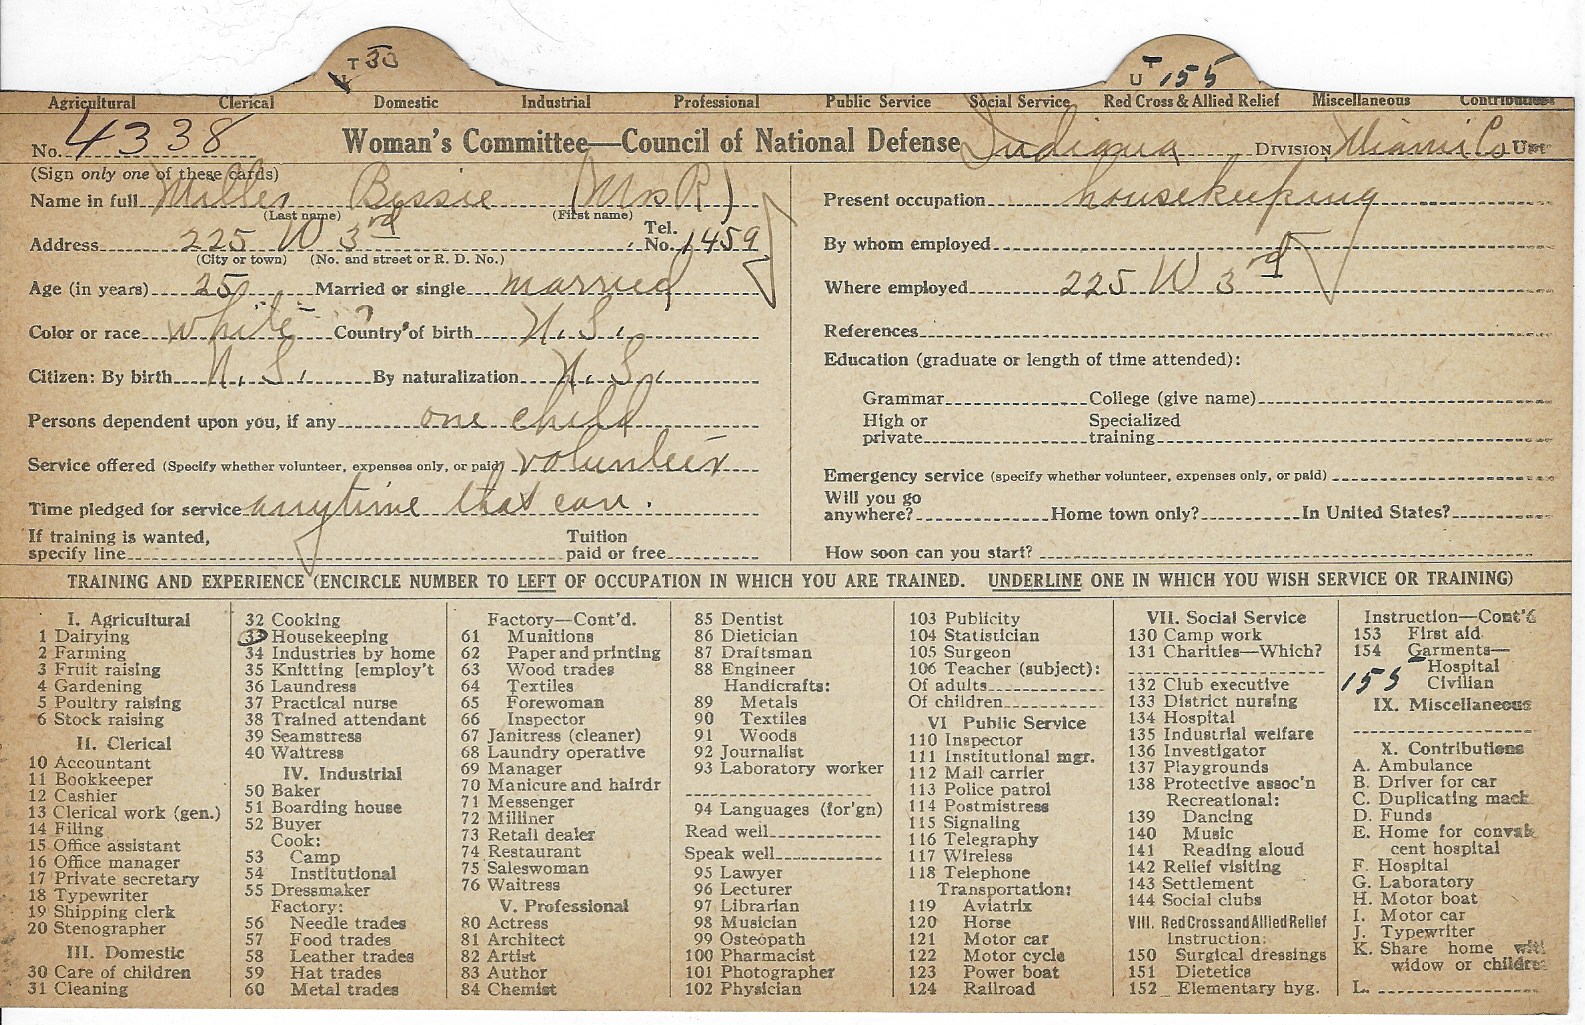 T 33
U T 155
Agricultural Clerical Domestic Industrial Professional Public Service Social Service Red Cross & Allied Relief Miscellaneous Contributions
No. 4338 Woman's Committee—Council of National Defense Indiana DIVISION Miami Co Unit
(Sign only one of these cards)
Name in full Miller Bessie (Mrs R)
(Last name) (First name)
Address 225 W 3rd Tel. No. 1459
(City or town) (No. and street or R. D. No.)
Age (in years) 25 Married or single married
Color or race white Country of birth U.S.
Citizen: By birth U.S. By naturalization U.S.
Persons dependent upon you, if any one child
Service offered (Specify whether volunteer, expenses only, or paid) volunteer
Time pledged for service anytime that can.
If training is wanted,
specify line Tuition
paid or free
Present occupation housekeeping
By whom employed
Where employed 225 W 3rd
References
Education (graduate or length of time attended):
Grammar College (give name)
High or
private Specialized
training
Emergency service (specify whether volunteer, expenses only, or paid)
Will you go
anywhere? Home town only? In United States?
How soon can you start?
TRAINING AND EXPERIENCE (ENCIRCLE NUMBER TO LEFT OF OCCUPATION IN WHICH YOU ARE TRAINED. UNDERLINE ONE IN WHICH YOU WISH SERVICE OR TRAINING)
I. Agricultural
1 Dairying
2 Farming
3 Fruit raising
4 Gardening
5 Poultry raising
6 Stock raising
II. Clerical
10 Accountant
11 Bookkeeper
12 Cashier
13 Clerical work (gen.)
14 Filing
15 Office assistant
16 Office manager
17 Private secretary
18 Typewriter
19 Shipping clerk
20 Stenographer
III. Domestic
30 Care of children
31 Cleaning
32 Cooking
33 Housekeeping
34 Industries by home
35 Knitting [employ't
36 Laundress
37 Practical nurse
38 Trained attendant
39 Seamstress
40 Waitress
IV. Industrial
50 Baker
51 Boarding house
52 Buyer
Cook:
53 Camp
54 Institutional
55 Dressmaker
Factory:
56 Needle trades
57 Food trades
58 Leather trades
59 Hat trades
60 Metal trades
Factory—Cont'd.
61 Munitions
62 Paper and printing
63 Wood trades
64 Textiles
65 Forewoman
66 Inspector
67 Janitress (cleaner)
68 Laundry operative
69 Manager
70 Manicure and hairdr
71 Messenger
72 Milliner
73 Retail dealer
74 Restaurant
75 Saleswoman
76 Waitress
V. Professional
80 Actress
81 Architect
82 Artist
83 Author
84 Chemist
85 Dentist
86 Dietician
87 Draftsman
88 Engineer
Handicrafts:
89 Metals
90 Textiles
91 Woods
92 Journalist
93 Laboratory worker
94 Languages (for'gn)
Read well
Speak well
95 Lawyer
96 Lecturer
97 Librarian
98 Musician
99 Osteopath
100 Pharmacist
101 Photographer
102 Physician
103 Publicity
104 Statistician
105 Surgeon
106 Teacher (subject):
Of adults
Of children
VI Public Service
110 Inspector
111 Institutional mgr.
112 Mail carrier
113 Police patrol
114 Postmistress
115 Signaling
116 Telegraphy
117 Wireless
118 Telephone
Transportation:
119 Aviatrix
120 Horse
121 Motor car
122 Motor cycle
123 Power boat
124 Railroad
VII. Social Service
130 Camp work
131 Charities—Which?
132 Club executive
133 District nursing
134 Hospital
135 Industrial welfare
136 Investigator
137 Playgrounds
138 Protective assoc'n
Recreational:
139 Dancing
140 Music
141 Reading aloud
142 Relief visiting
143 Settlement
144 Social clubs
VIII. Red Cross and Allied Relief
Instruction:
150 Surgical dressings
151 Dietetics
152 Elementary hyg.
Instruction—Cont'd
153 First aid
154 Garments—
Hospital
155 Civilian
IX. Miscellaneous
X. Contributions
A. Ambulance
B. Driver for car
C. Duplicating mach.
D. Funds
E. Home for convales
cent hospital
F. Hospital
G. Laboratory
H. Motor boat
I. Motor car
J. Typewriter
K. Share home with
widow or children
L.